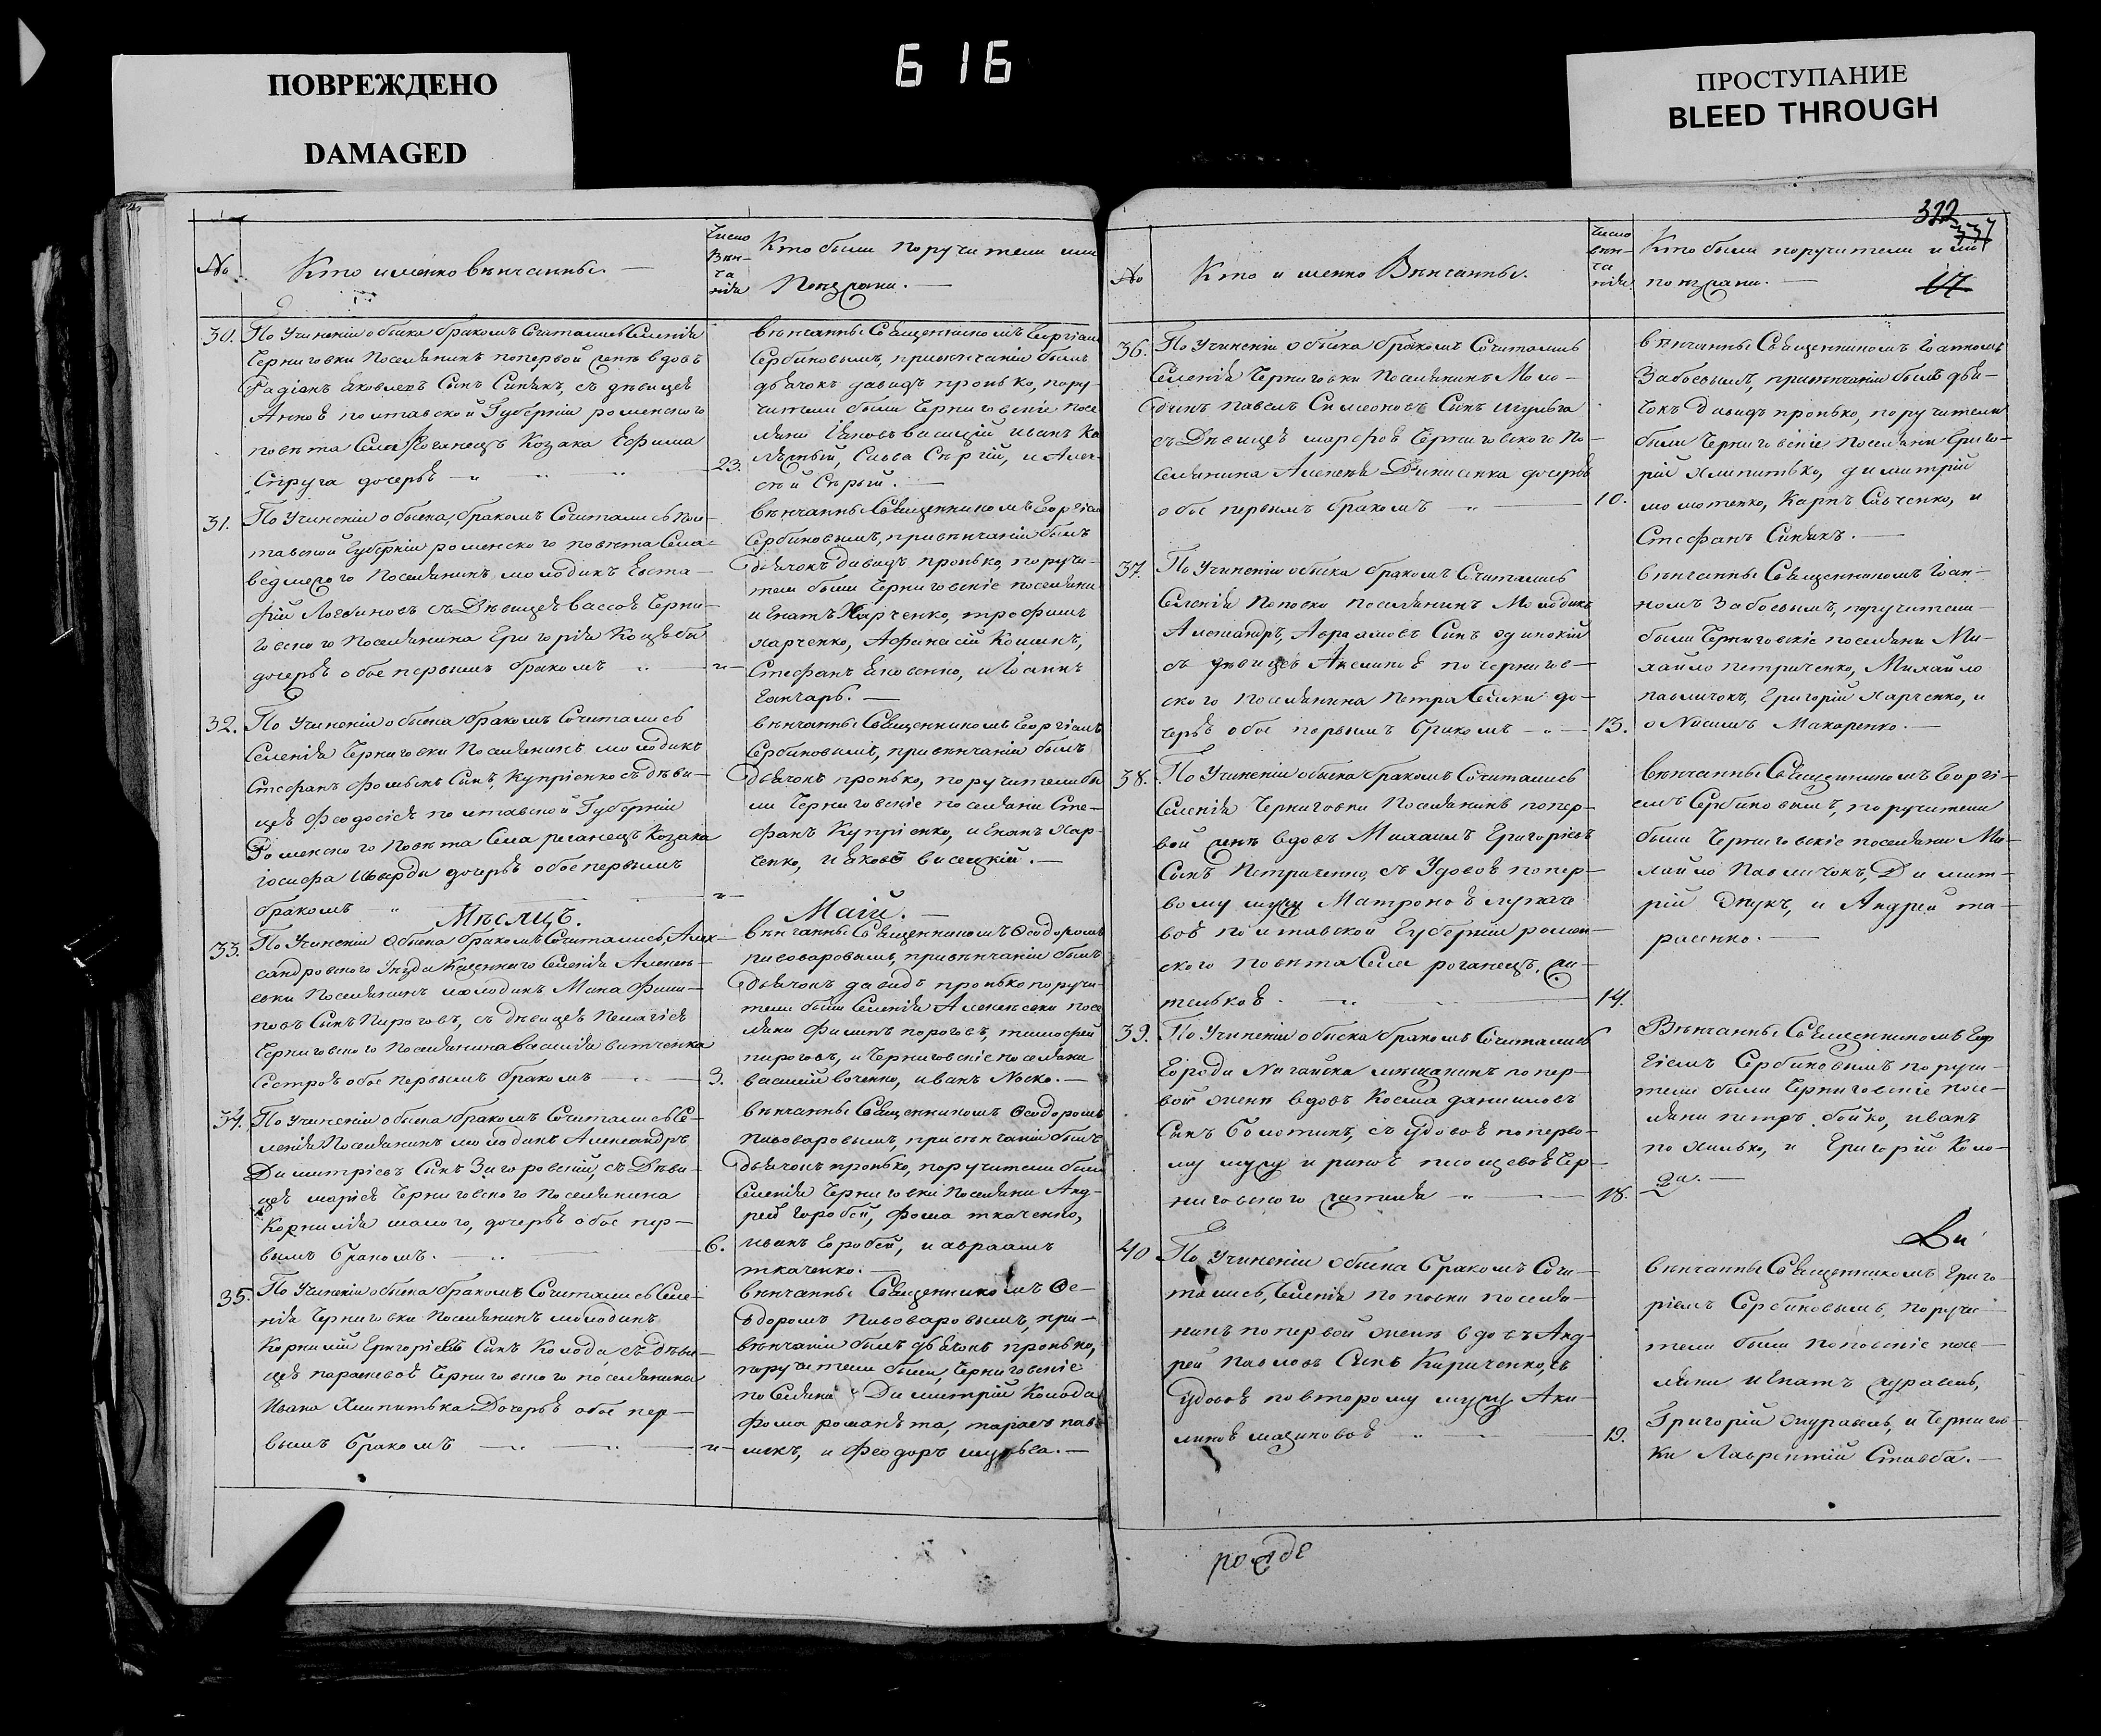 ПОВРЕЖДЕНО
DAMAGED
616
ПРОСТУПАНИЕ
BLEED THROUGH
322
337
17
№
Кто именно вѣнчанны. —
Число
Вѣн-
ча
нія
Кто были поручители или
Поезжани. —
30. По Учиненіи обыска бракомъ Сочитались Селенія
Черниговки Поселянинъ попервой женѣ вдовъ
Радіонъ Яковлевъ Сынъ Синякъ, съ дѣвицею
Анною полтавской Губерніи роменского
повѣта Села Роганецъ Козака Ефима
Спруга дочерью
23.
вѣнчанны Священникомъ Георгіем
Сербиновымъ, привѣнчаніи былъ
дьячокъ давидъ пронько, пору-
чители были Черниговскіе посе
ляни Яковъ висицкій иванъ
Савва Сѣрій, и Алек-
сѣй Сѣрый. —
31. По Учиненіи обыска, бракомъ Сочитались Пол-
тавской Губерніи роменского повѣта Села
ведмежого Поселянинъ молодикъ Евста-
фій Логвиновъ съ Дѣвицею Вассою Черни-
говского Поселянина Григорія Коцюбы
дочерью обое первымъ бракомъ
"
вѣнчанны Священникомъ Георгіем
Сербиновымъ, привѣнчаніи былъ
дьячокъ Давидъ пронько, поручи-
тели были Черниговскіе поселяни
игнатъ Харченко, трофимъ
харченко, Афанасій Кошикъ,
Стефанъ Яковенко, и Іоаннъ
Гончаръ. —
32. По Учиненіи обыска бракомъ Сочитались
Селенія Черниговки Поселянинъ молодикъ
Стефанъ Фоминъ Сынъ, Купріенко съ дѣви-
цею Феодосіею полтавской Губерніи
Роменского Повѣта Села роганецъ Козака
іосифа Шварды дочерью обое первымъ
бракомъ
"
вѣнчанны Священникомъ Георгіемъ
Сербиновымъ, привѣнчаніи былъ
дьячокъ пронько, поручители бы
ли Черниговскіе поселяни Сте-
фанъ Купріенко, игнатъ Хар-
ченко, и Яковъ висецкій. —
Мѣсяцъ. Маій. —
33. По Учиненіи обыска бракомъ Сочитались, Алек-
сандровского Уѣзда Казенного Селенія Алексѣ-
евки Поселянинъ молодикъ Мина Фили-
повъ Сынъ Пироговъ, съ дѣвицею Пелагіею
Черниговского Поселянина Василія витченка
Сестрою обое первымъ бракомъ
3.
вѣнчанны Священникомъ Ѳеодоромъ
пивоваровымъ, привѣнчаніи былъ
дьячокъ давидъ пронько поручи-
тели были Селенія Алексѣевки посе
ляни Филипъ пироговъ, тимофей
пироговъ, и Черниговскіе поселяни
василій воченко, иванъ Носко. —
34. По Учиненіи обыска бракомъ Сочитались Се-
ленія Поселянинъ молодикъ Александръ
Димитріевъ Сынъ Загоровскій, съ Дѣви-
цею маріею Черниговского Поселянина
Корнилія малого, дочерью обое пер-
вымъ бракомъ. —
6.
вѣнчанны Священникомъ Ѳеодоромъ
Пивоваровымъ, привѣнчаніи былъ
дьячокъ пронько, поручители были
Селенія Черниговки Поселяни Анд-
рей горобей, фома ткаченко,
иванъ Горобей, и авраамъ
ткаченко. —
35. По Учиненіи обыска бракомъ Сочитались Селе-
нія Черниговки Поселянинъ молодикъ
Корнилій Григоріевъ Сынъ Колода, съ дѣви-
цею параскевою Черниговского поселянина
Ивана Хлипитька Дочерью обое пер-
вымъ бракомъ
"
вѣнчанны Священникомъ Ѳе-
одоромъ Пивоваровымъ, при-
вѣнчаніи былъ дьячокъ пронько,
поручители были, Черниговскіе
поселяни Димитрій Колода
фома романъта, тарасъ пав
люкъ, и Феодоръ шульга. —
№
Кто именно Вѣнчанны.
Число
вѣн-
ча
нія
Кто были поручители или
поезжани. —
36. По Учиненіи обыска бракомъ Сочитались
Селенія Черниговки Поселянинъ Моло-
дикъ павелъ Симеоновъ Сынъ шульга
съ Дѣвицею марфою Черниговского По-
селянина Алексѣя Денисенка дочерью
обое первымъ бракомъ
10.
вѣнчанны Священникомъ Іоанномъ
Забоевымъ, привѣнчаніи былъ дья-
чокъ Давидъ пронько, поручители
были Черниговскіе поселяни Григо-
рій Хлипитько, димитрій
молотенко, Карпъ Савченко, и
Стефанъ Синякъ. —
37. По Учиненіи обыска бракомъ Сочитались
Селенія Поповки поселянинъ Молодикъ
Александръ, Авраамовъ Сынъ одинокій
съ дѣвицею Акилиною по Черниговс-
кого поселянина Петра до-
черью обое первымъ бракомъ
13.
вѣнчанны Священникомъ Іоан-
номъ Забоевымъ, поручители
были Черниговскіе поселяни Ми-
хайло петриченко, Михайло
павличокъ, Григорій Харченко, и
онисимъ Макаренко. —
38. По Учиненіи обыска бракомъ Сочитались
Селенія Черниговки Поселянинъ попер-
вой женѣ вдовъ Михаилъ Григоріевъ
Сынъ Петриченко, съ Удовою попер-
вому мужу Матроною
вою полтавской Губерніи ромен-
ского повѣта Села роганецъ, жи-
телькою
14.
Вѣнчанны Священникомъ Георгі-
емъ Сербиновымъ, поручители
были Черниговскіе поселяни Ми-
хайло Павличокъ, Димит-
рій Дпукъ, и Андрей та-
расенко. —
39. По Учиненіи обыска бракомъ Сочитались
Города Ногайска мѣщанинъ попер-
вой женѣ вдовъ Косма даниловъ
Сынъ Болотинъ, съ удовою поперво-
му мужу ириною Чер-
ниговского жителя
18.
Вѣнчанны Священникомъ Геор
гіемъ Сербиновымъ поручи-
тели были Черниговскіе посе-
ляни петръ бойко, иванъ
похилько, и Григорій Коло-
да. —
40 По Учиненіи обыска бракомъ Сочи-
тались, Селенія поповки поселя-
нинъ попервой женѣ вдовъ Анд-
рей Павловъ Сынъ Кириченко, съ
удовою повторому мужу Аки-
линою мазиновою
19.
вѣнчанны Священникомъ Григо-
ріемъ Сербиновымъ, поручи-
тели были поповскіе посе-
ляни игнатъ журавель,
Григорій журавель, и Чернигов-
ки Лаврентій Ставба. —